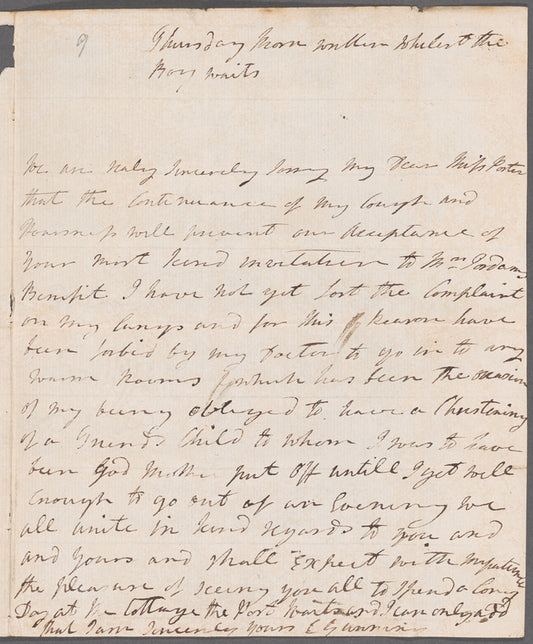 9
Thursday Morn written whilest the
Boy waits
We are realy Sincerely Sorry my Dear Miss Porter
that the Continuance of my Cough and
Hoarsness will prevent our acceptance of
your most kind invitation to Mrs Jordans
Benefit I have not yet lost the Complaint
on my lungs and for this reason have
been forbid by my Doctor to go in to any
warm Rooms which has been the occasion
of my being obleged to have a Christening
of a Friends Child to whom I was to have
been God Mother put off untill I get well
Enough to go out of an Evening we
all unite in kind regards to you and
and yours and shall Expect with impatience
the pleasure of seeing you all to Spend a Long
Day at the Cottage the Post waits and I can only add
that I am Sincerely yours E Gunning